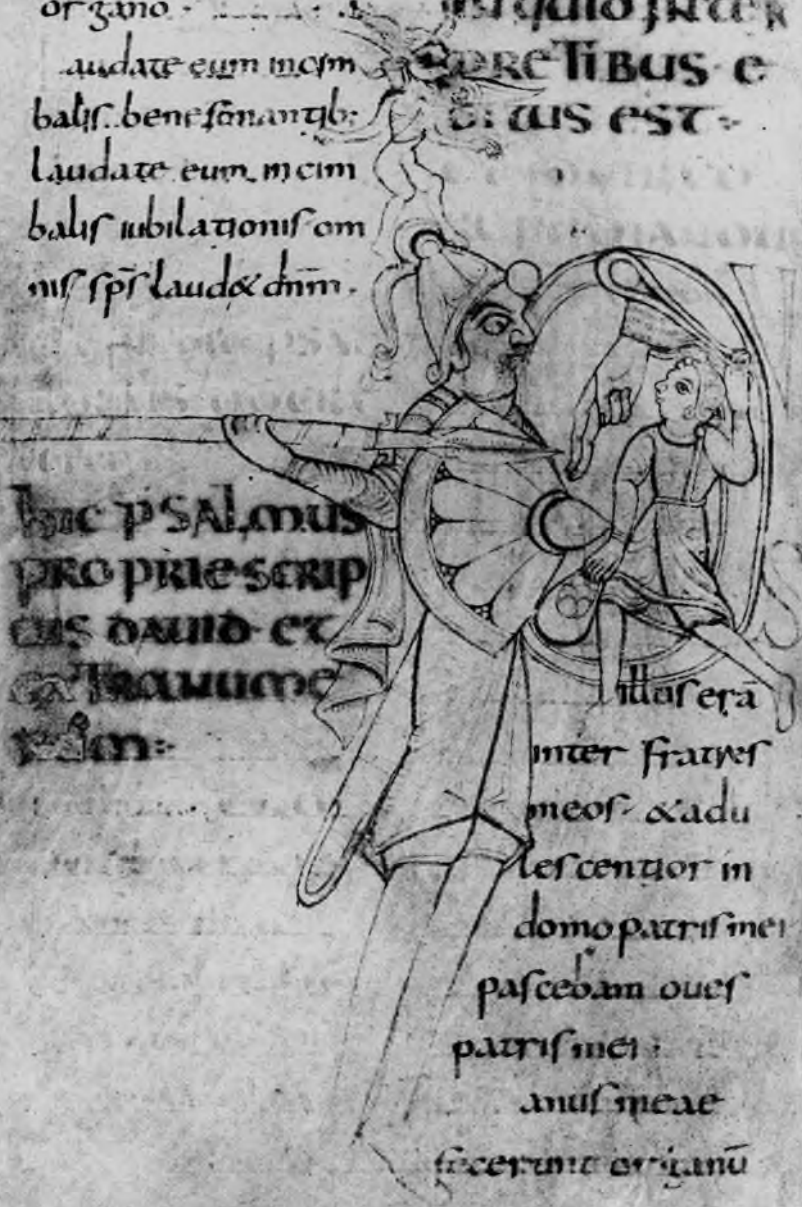 organo
audate eum in cym
balis. bene sonantib:
laudate eum in cim
balis iubilationis om
nis sp̄s laud& dn̄m.
hic psalmus
proprie scrip
tus david et
extra nume
rum:
pretibus e
ditus est:
illus erā
inter fratres
meos. & adu
lescentior in
domo patris mei
pascebam oues
patris mei.
anus meae
fecerunt organū